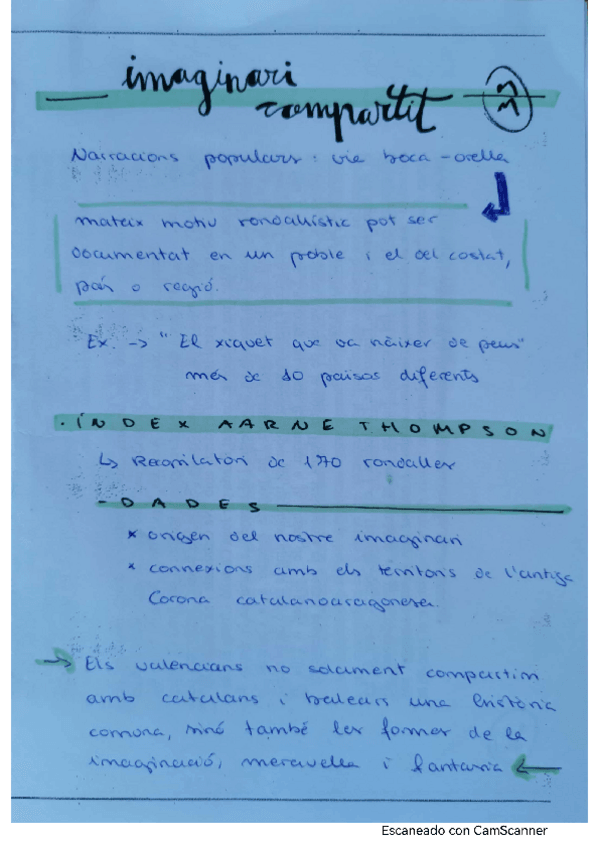 imaginari
compartit
Narracions populars: via boca-orella
mateix motiu rondallístic pot ser
documentat en un poble i el del costat,
país o regió.
Ex. -> "El xiquet que va nàixer de peus"
més de 10 països diferents
. ÍNDEX AARNE THOMPSON
↳ Recopilatori de 170 rondalles
- DADES
* origen del nostre imaginari
* connexions amb els territoris de l'antiga
Corona catalanoaragonesa.
→ Els valencians no solament compartim
amb catalans i balears una història
comuna, sinó també les formes de la
imaginació, meravella i fantasia ←
Escaneado con CamScanner